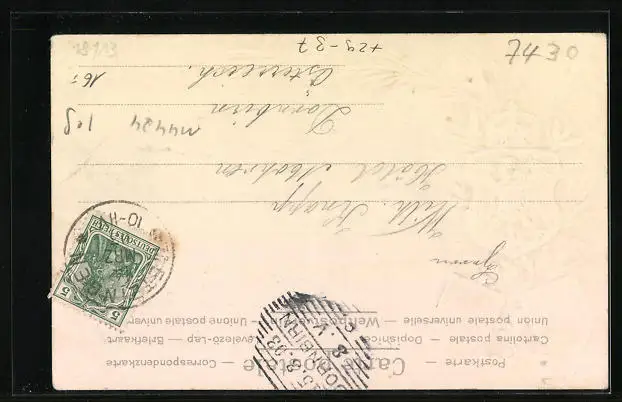 Postkarte — Carte postale — Correspondenzkarte
Cartolina postale — Dopisnice — Levelező-Lap — Briefkaart
Union postale universelle — Weltpostverein — Unione postale universale
Herrn
Wilh. Knapp
Hôtel Mohren
Dornbirn
Österreich.
DEUTSCHES REICH
5
5
10-11
DORNBIRN
7430
+29-37
16-
M4424